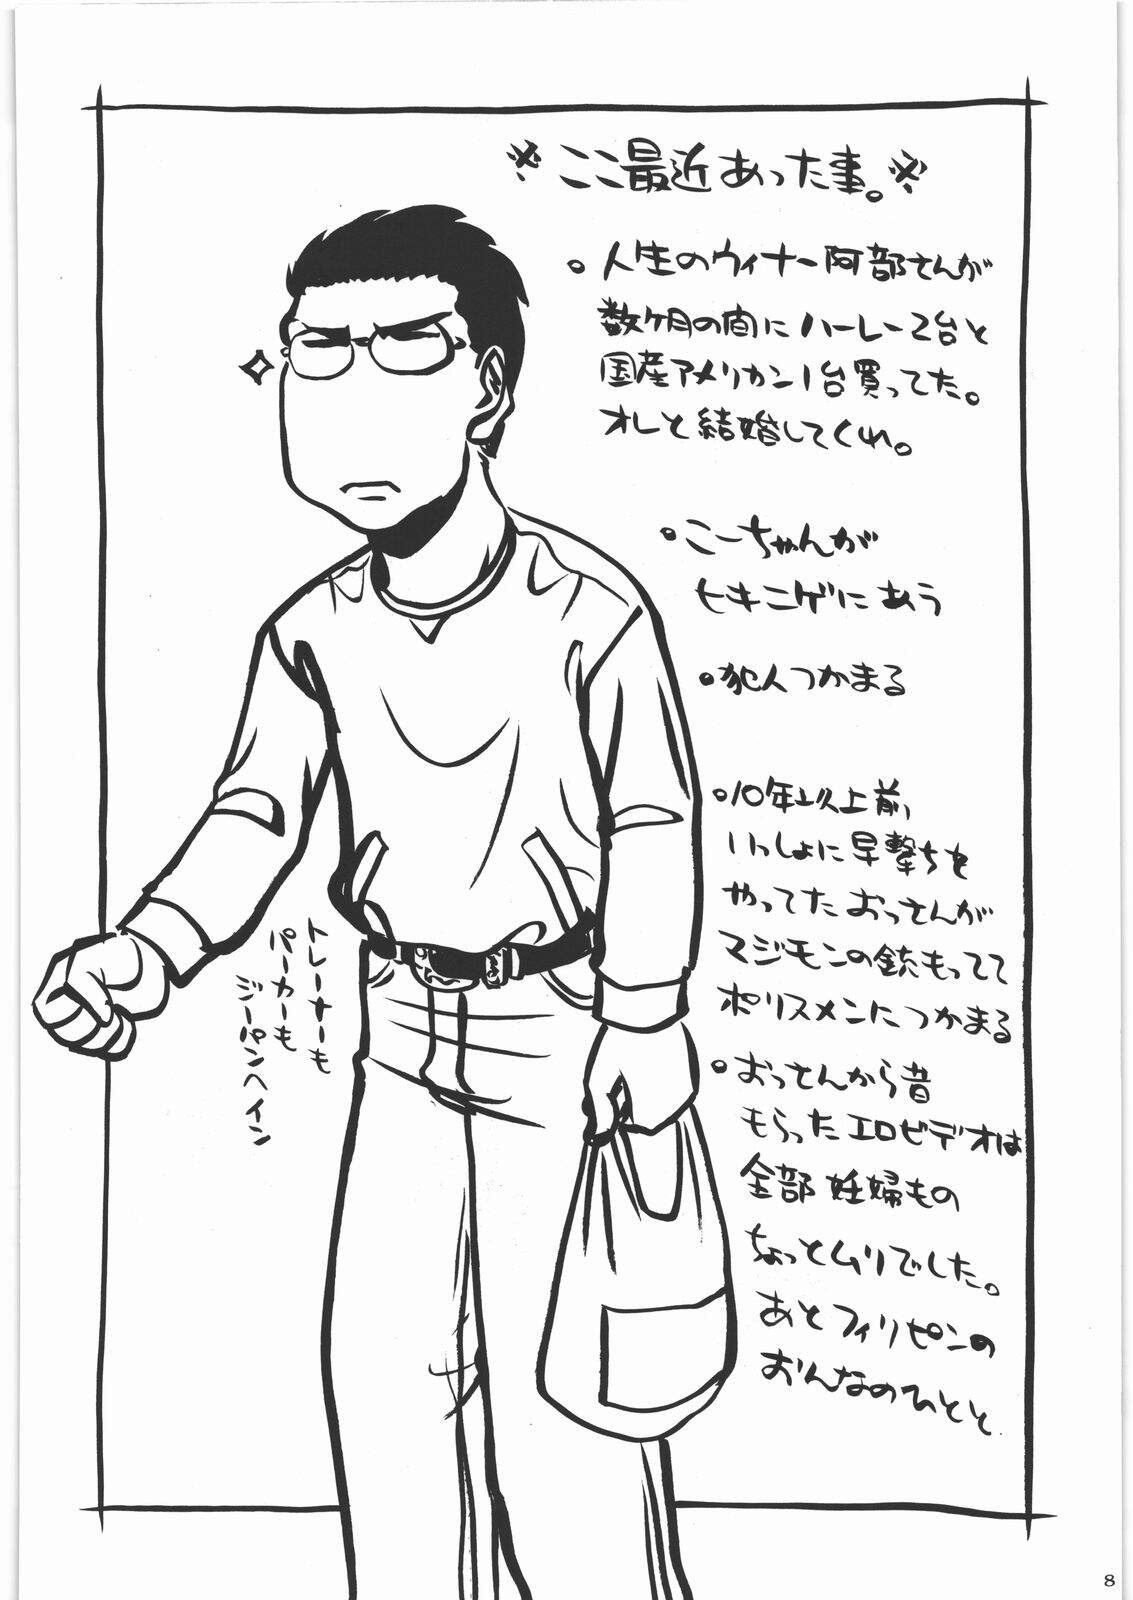 ※ここ最近あった事。※
。人生のウィナー阿部さんが
数ヶ月の間にハーレー2台と
国産アメリカン1台買ってた。
オレと結婚してくれ。
。こーちゃんが
ヒキニゲにあう
。犯人つかまる
。10年以上前、
いっしょに早撃ちを
やってたおっさんが
マジモンの銃もってて
ポリスメンにつかまる
。おっさんから昔
もらったエロビデオは
全部妊婦もの
ちょっとムリでした。
あとフィリピンの
おんなのひとと
トレーナーも
パーカーも
ジーパンヘイン
8